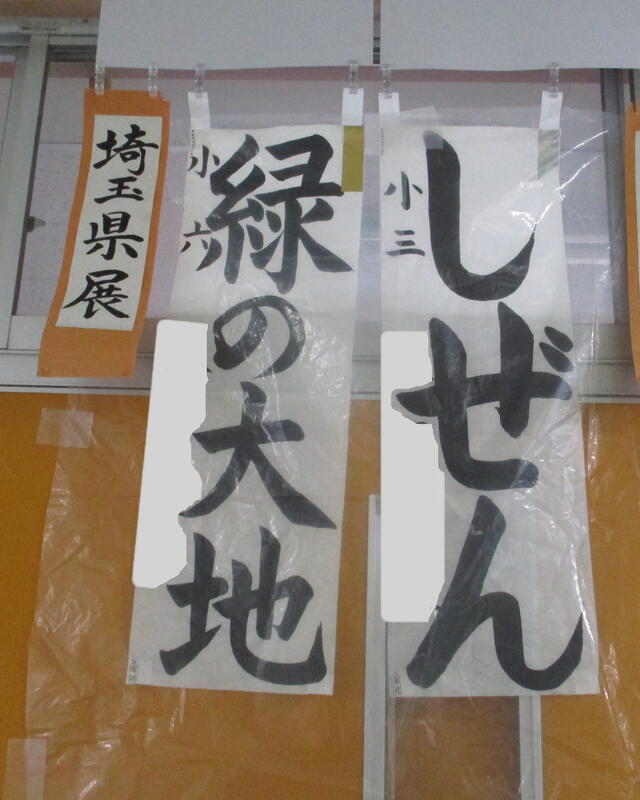 しぜん
小三
緑の大地
小六
埼玉県展